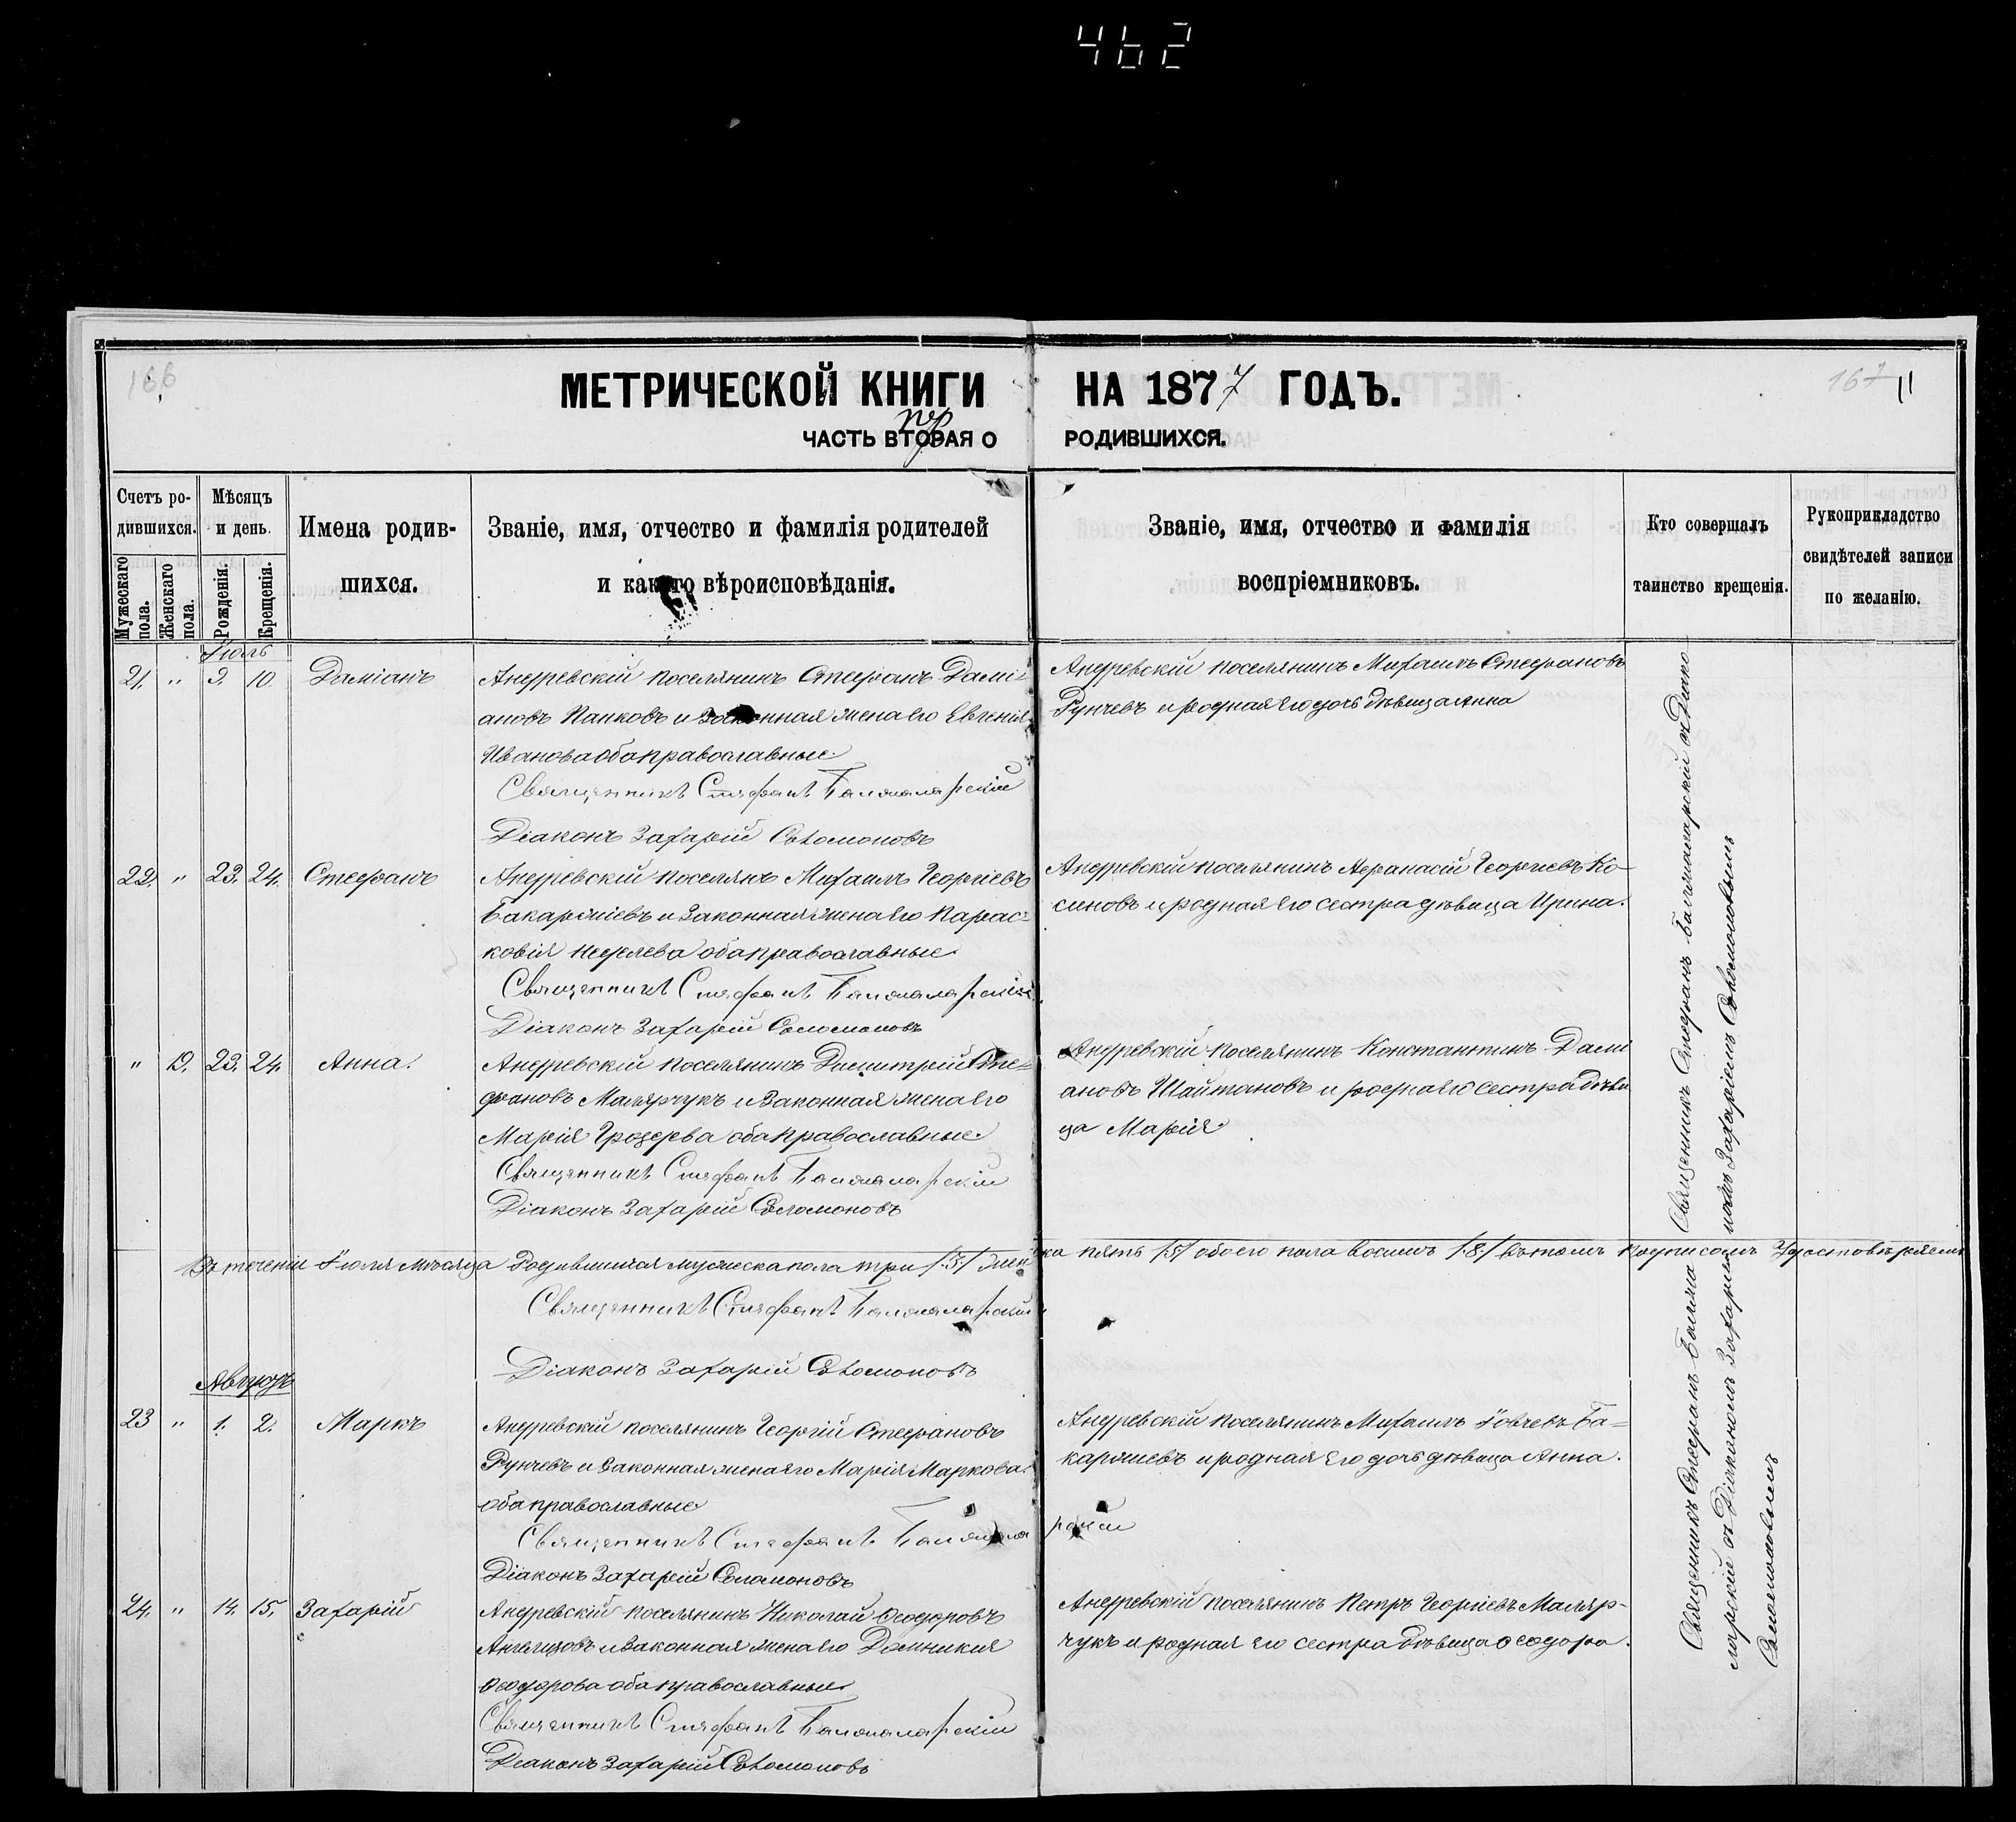 462
166
167
11
МЕТРИЧЕСКОЙ КНИГИ НА 1877 ГОДЪ.
ЧАСТЬ ВТОРАЯ О РОДИВШИХСЯ.
пер
Счетъ ро-
дившихся.
Мужескаго
пола.
Женскаго
пола.
Мѣсяцъ
и день.
Рожденія.
Крещенія.
Имена родив-
шихся.
Званіе, имя, отчество и фамилія родителей
и какого вѣроисповѣданія.
Званіе, имя, отчество и фамилія
воспріемниковъ.
Кто совершалъ
таинство крещенія.
Рукоприкладство
свидѣтелей записи
по желанію.
Іюль
21. " 9. 10. Даміанъ
Андреевскій поселянинъ Стефанъ Дамі-
ановъ Панковъ и Законная жена его Евгенія
Иванова оба православные.
Священникъ Стефанъ
Діаконъ Захарій Соломоновъ
Андреевскій поселянинъ Михаилъ Стефановъ
Рунчевъ и родная его дочь дѣвица Анна
22. " 23. 24. Стефанъ
Андреевскій поселянъ Михаилъ Георгіевъ
и Законная жена его Парас-
ковія оба православные.
Священникъ Стефанъ
Діаконъ Захарій Соломоновъ
Андреевскій поселянинъ Афанасій Георгіевъ Ко-
синовъ и родная его сестра дѣвица Ирина.
" 19. 23. 24. Анна.
Андреевскій поселянинъ Димитрій Сте-
фановъ Малярчукъ и Законная жена его
Марія оба православные.
Священникъ Стефанъ
Діаконъ Захарій Соломоновъ
Андреевскій поселянинъ Константинъ Дамі
ановъ Шайтановъ и родная его сестра дѣви
ца Марія
Въ теченіи Іюля мѣсяца Родившихся мужеска пола три /3/ женска пять /5/ обоего пола восемь /8/ въ томъ подписомъ Удостовѣряемъ
Священникъ Стефанъ
Діаконъ Захарій Соломоновъ
Августъ
23 " 1. 2. Маркъ
Андреевскій поселянинъ Георгій Стефановъ
Рунчевъ и Законная жена его Марія Маркова.
оба православные
Священникъ Стефанъ
Діаконъ Захарій Соломоновъ
Андреевскій поселянинъ Михаилъ Іовчевъ Ба-
и родная его дочь дѣвица Анна.
24. " 14. 15. Захарій
Андреевскій поселянинъ Николай Ѳеодоровъ
и Законная жена его Домникія
Ѳеодорова оба православные
Священникъ Стефанъ
Діаконъ Захарій Соломоновъ
Андреевскій поселянинъ Петръ Георгіевъ Маляр-
чукъ и родная его сестра дѣвица Ѳеодора.
Священникъ Стефанъ съ Діако
номъ Захаріемъ Соломоновымъ
Священникъ Стефанъ
съ Діакономъ Захаріемъ
Соломоновымъ